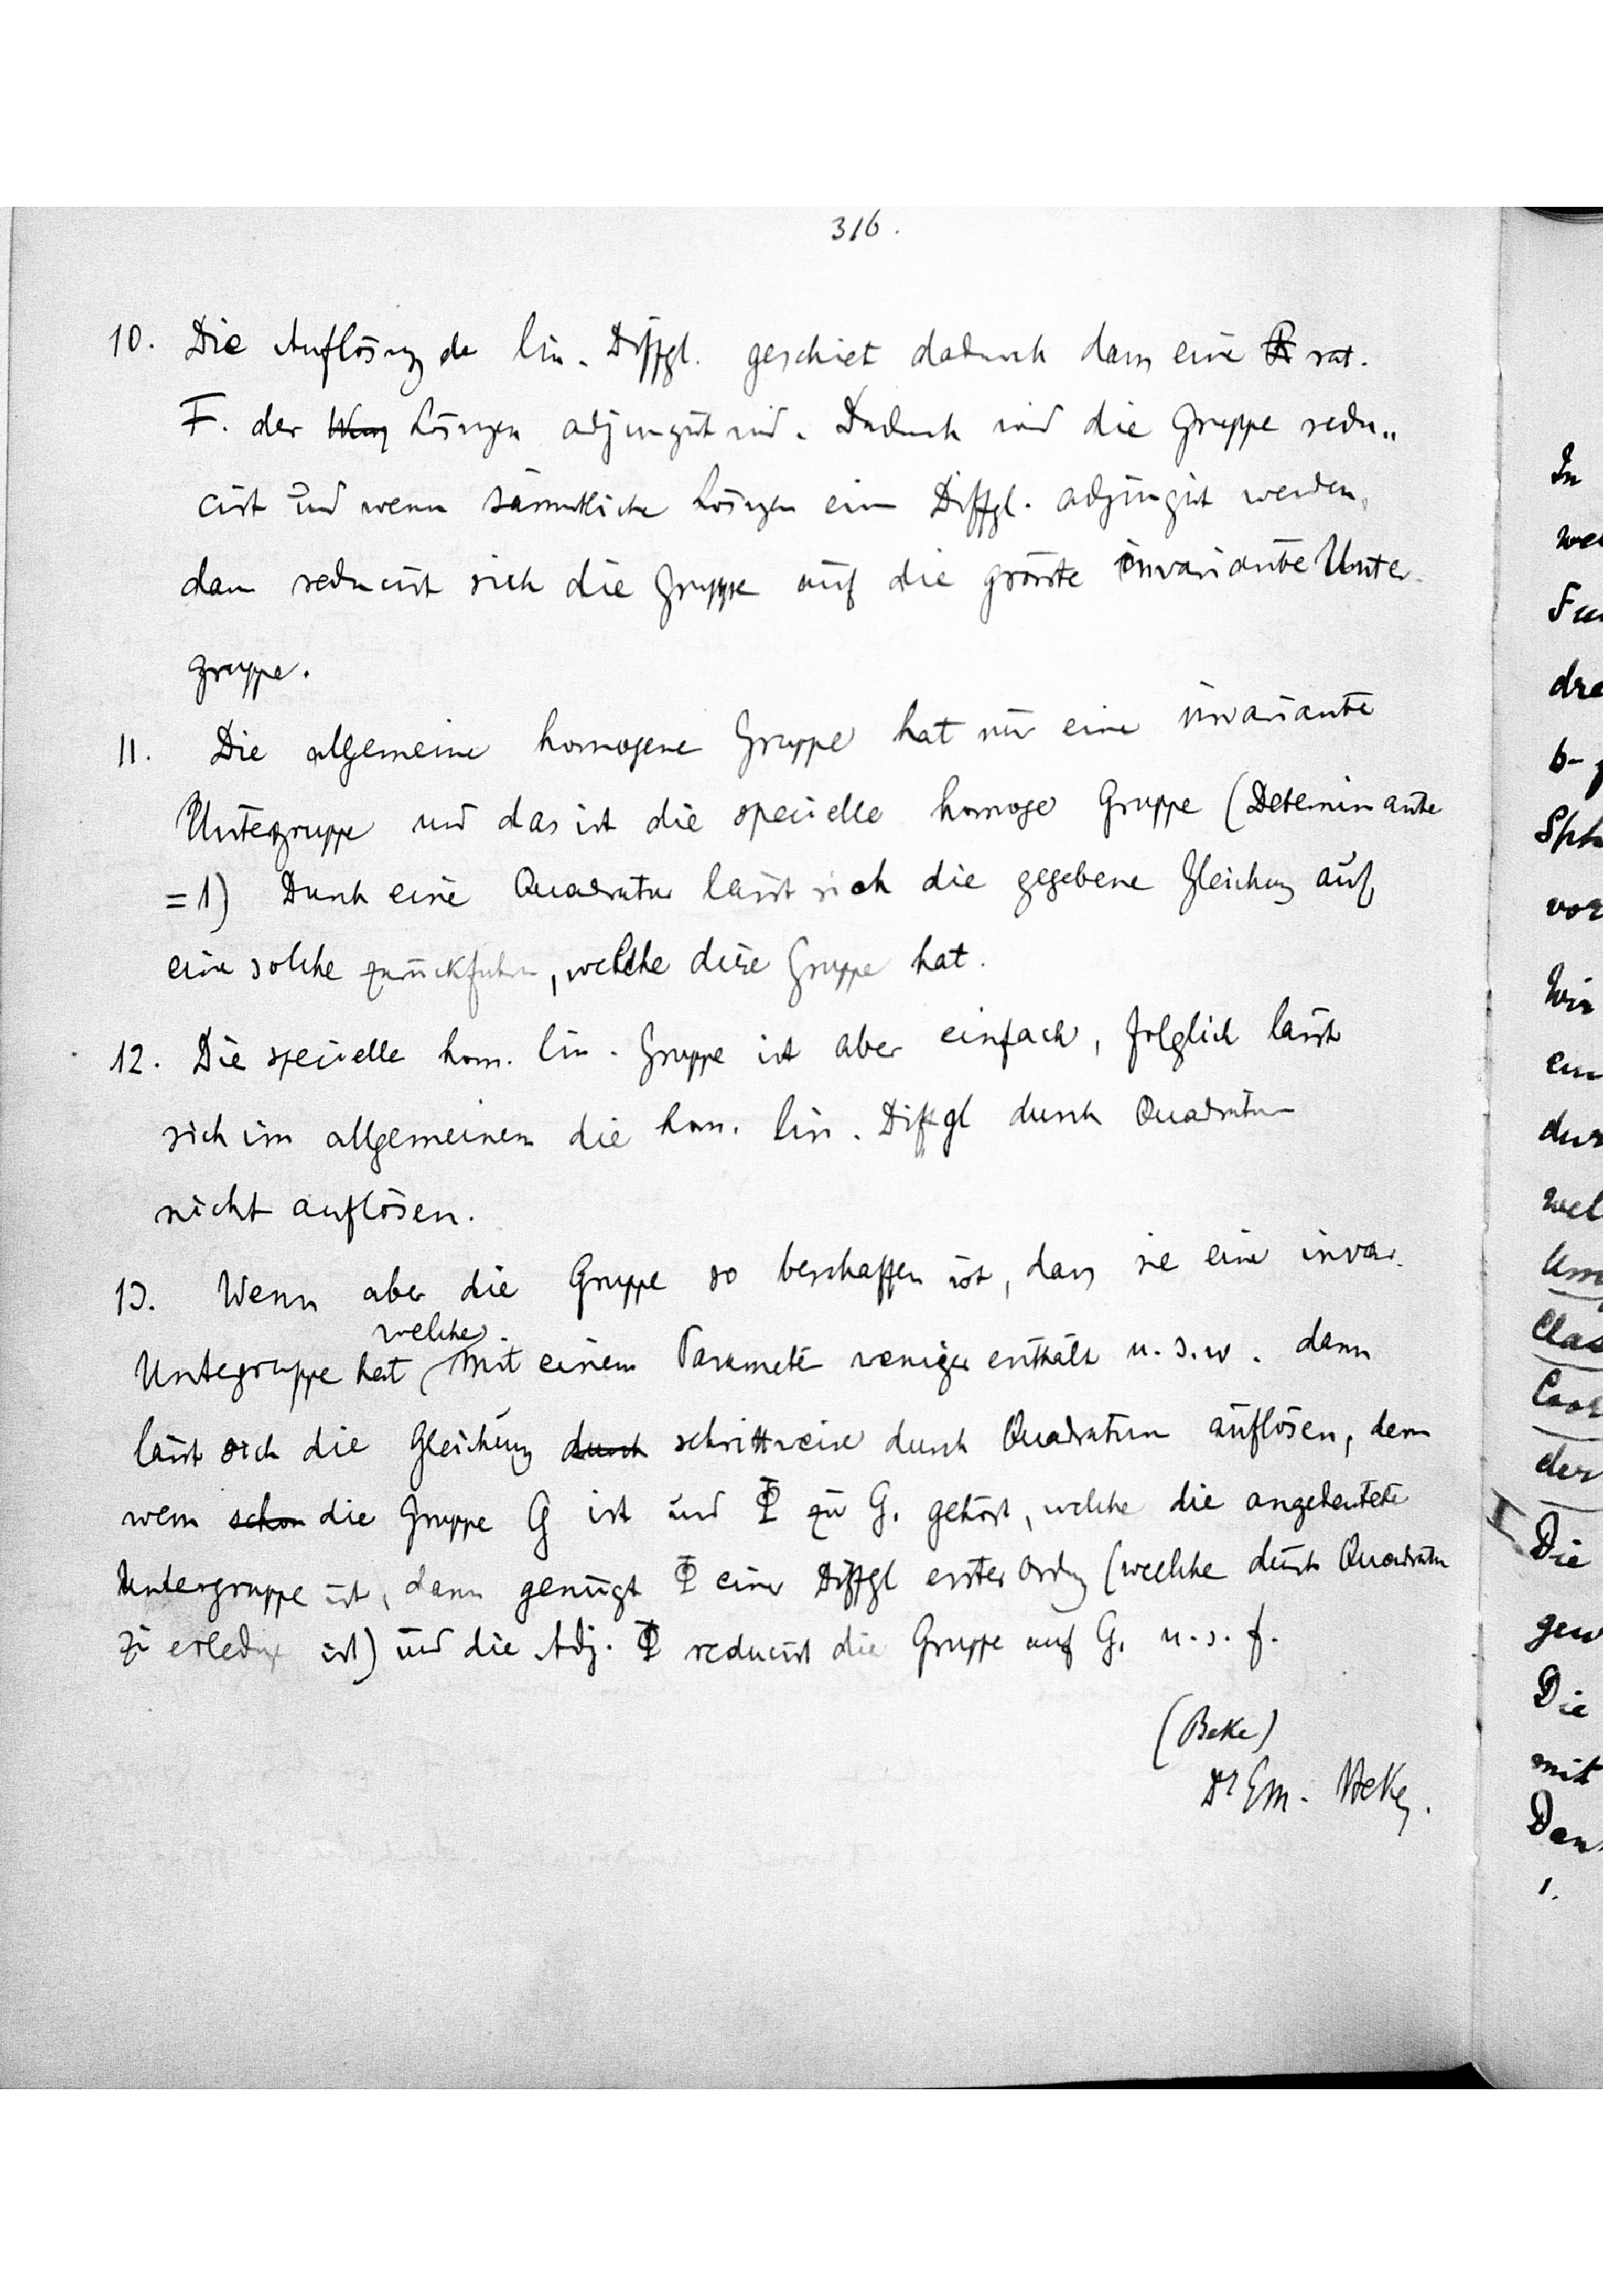 316.
10. Die Auflösung der lin. Diffgl. geschiet dadurch dass eine rat.
F. der Lösungen adjungirt wird. Dadurch wird die Gruppe redu„
cirt und wenn sämmtliche Lösungen einer Diffgl. adjungirt werden,
dann reducirt sich die Gruppe auf die grösste invariante Unter-
gruppe.
11. Die allgemeine homogene Gruppe hat nur eine invariante
Untergruppe und das ist die specielle homoge Gruppe (Determinante
= 1) Durch eine Quadratur lässt sich die gegebene Gleichung auf
eine solche zurückfuhren, welche diese Gruppe hat.
12. Die specielle hom. lin. Gruppe ist aber einfach, folglich lässt
sich im allgemeinen die hom. lin. Diffgl durch Quadraturen
nicht auflösen.
13. Wenn aber die Gruppe so beschaffen ist, dass sie eine invar.
welche
Untergruppe hat mit einem Parameter weniger enthält u. s. w. dann
lässt sich die Gleichung durch schrittweise durch Quadraturen auflösen, denn
wenn schon die Gruppe G ist und Φ zu G₁ gehört, welche die angedeutete
Untergruppe ist, dann genügt Φ einer Diffgl erster Ordng (welche durch Quadratur
zu erledigen ist) und die Adj. Φ reducirt die Gruppe auf G₁ u. s. f.
(Beke)
Dr Em. Beke.
In
Fu
dre
6-
Sph
vor
Wir
ein
dur
wel
Um
Clas
Coor
der
Die
gew
Die
mit
Dan
1.